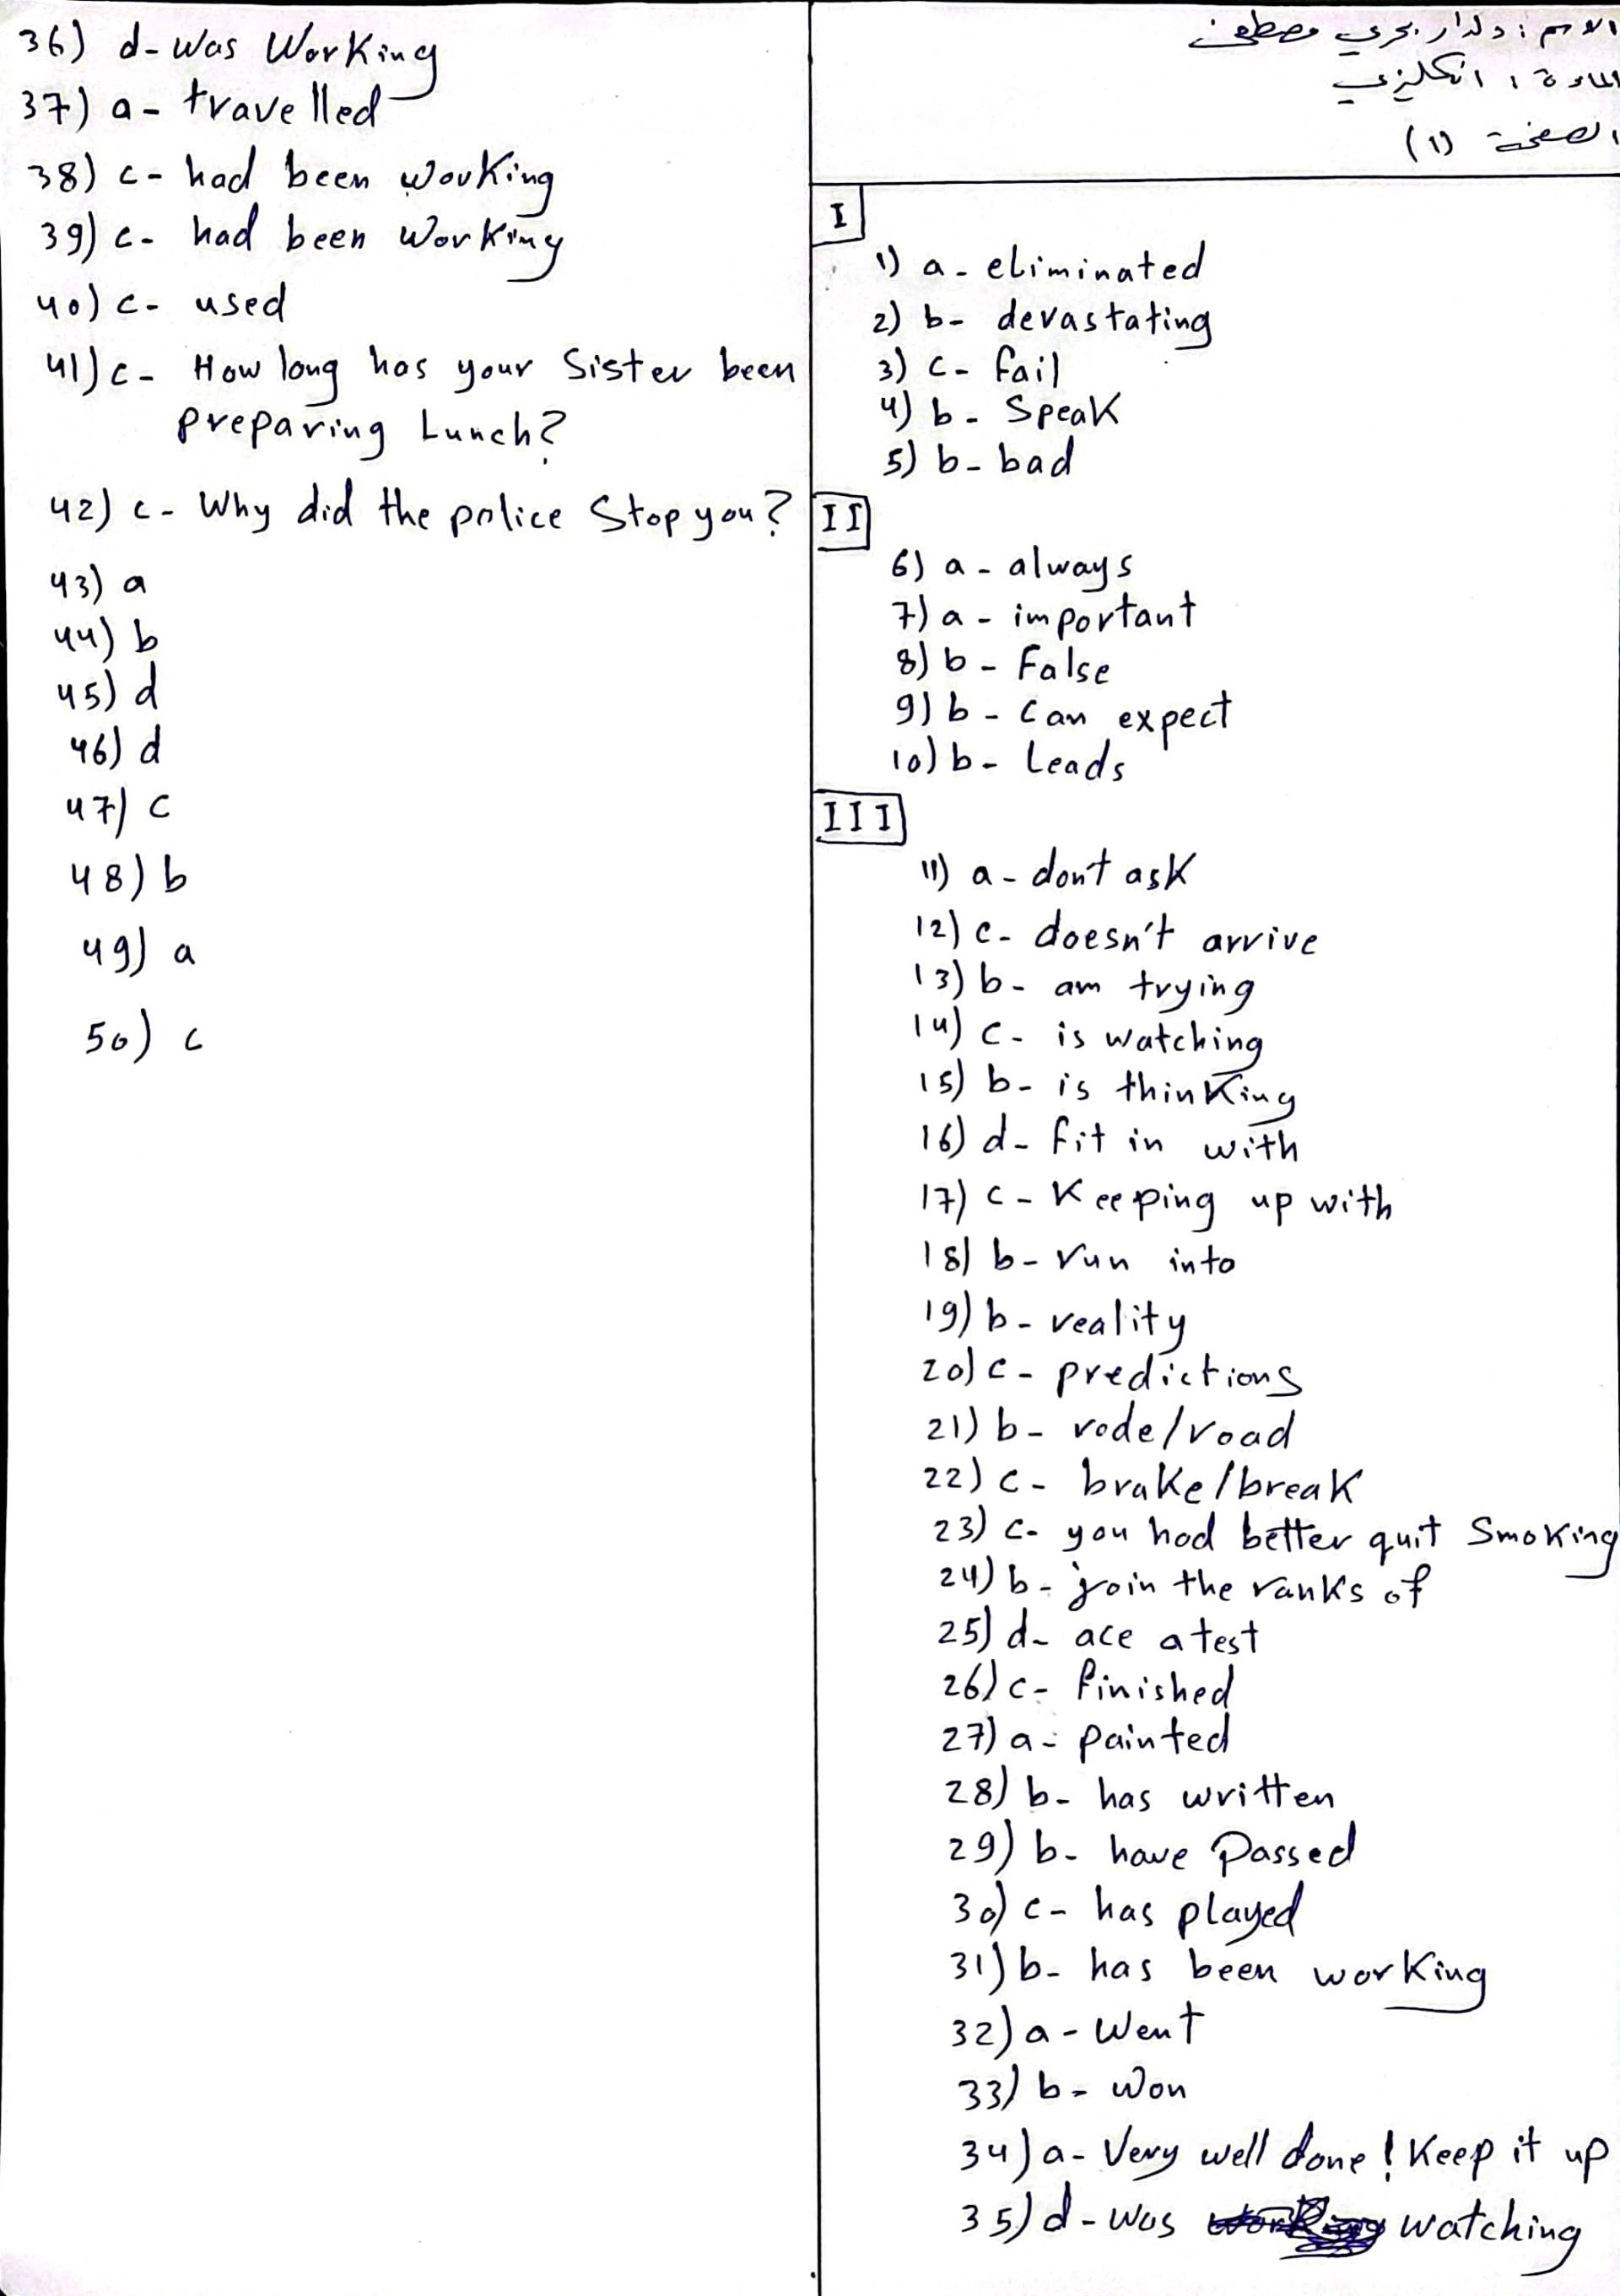 الاسم : دلدار بحري مصطفى
المادة : انكليزي
الصفحة (١)
I
1) a - eliminated
2) b - devastating
3) c - fail
4) b - Speak
5) b - bad
II
6) a - always
7) a - important
8) b - False
9) b - can expect
10) b - Leads
III
11) a - don't ask
12) c - doesn't arrive
13) b - am trying
14) c - is watching
15) b - is thinking
16) d - fit in with
17) c - Keeping up with
18) b - run into
19) b - reality
20) c - predictions
21) b - rode/road
22) c - brake/break
23) c - you had better quit Smoking
24) b - join the ranks of
25) d - ace a test
26) c - finished
27) a - painted
28) b - has written
29) b - have Passed
30) c - has played
31) b - has been working
32) a - Went
33) b - Won
34) a - Very well done! Keep it up
35) d - was watching
36) d - was Working
37) a - travelled
38) c - had been working
39) c - had been Working
40) c - used
41) c - How long has your Sister been
preparing Lunch?
42) c - Why did the police Stop you?
43) a
44) b
45) d
46) d
47) c
48) b
49) a
50) c